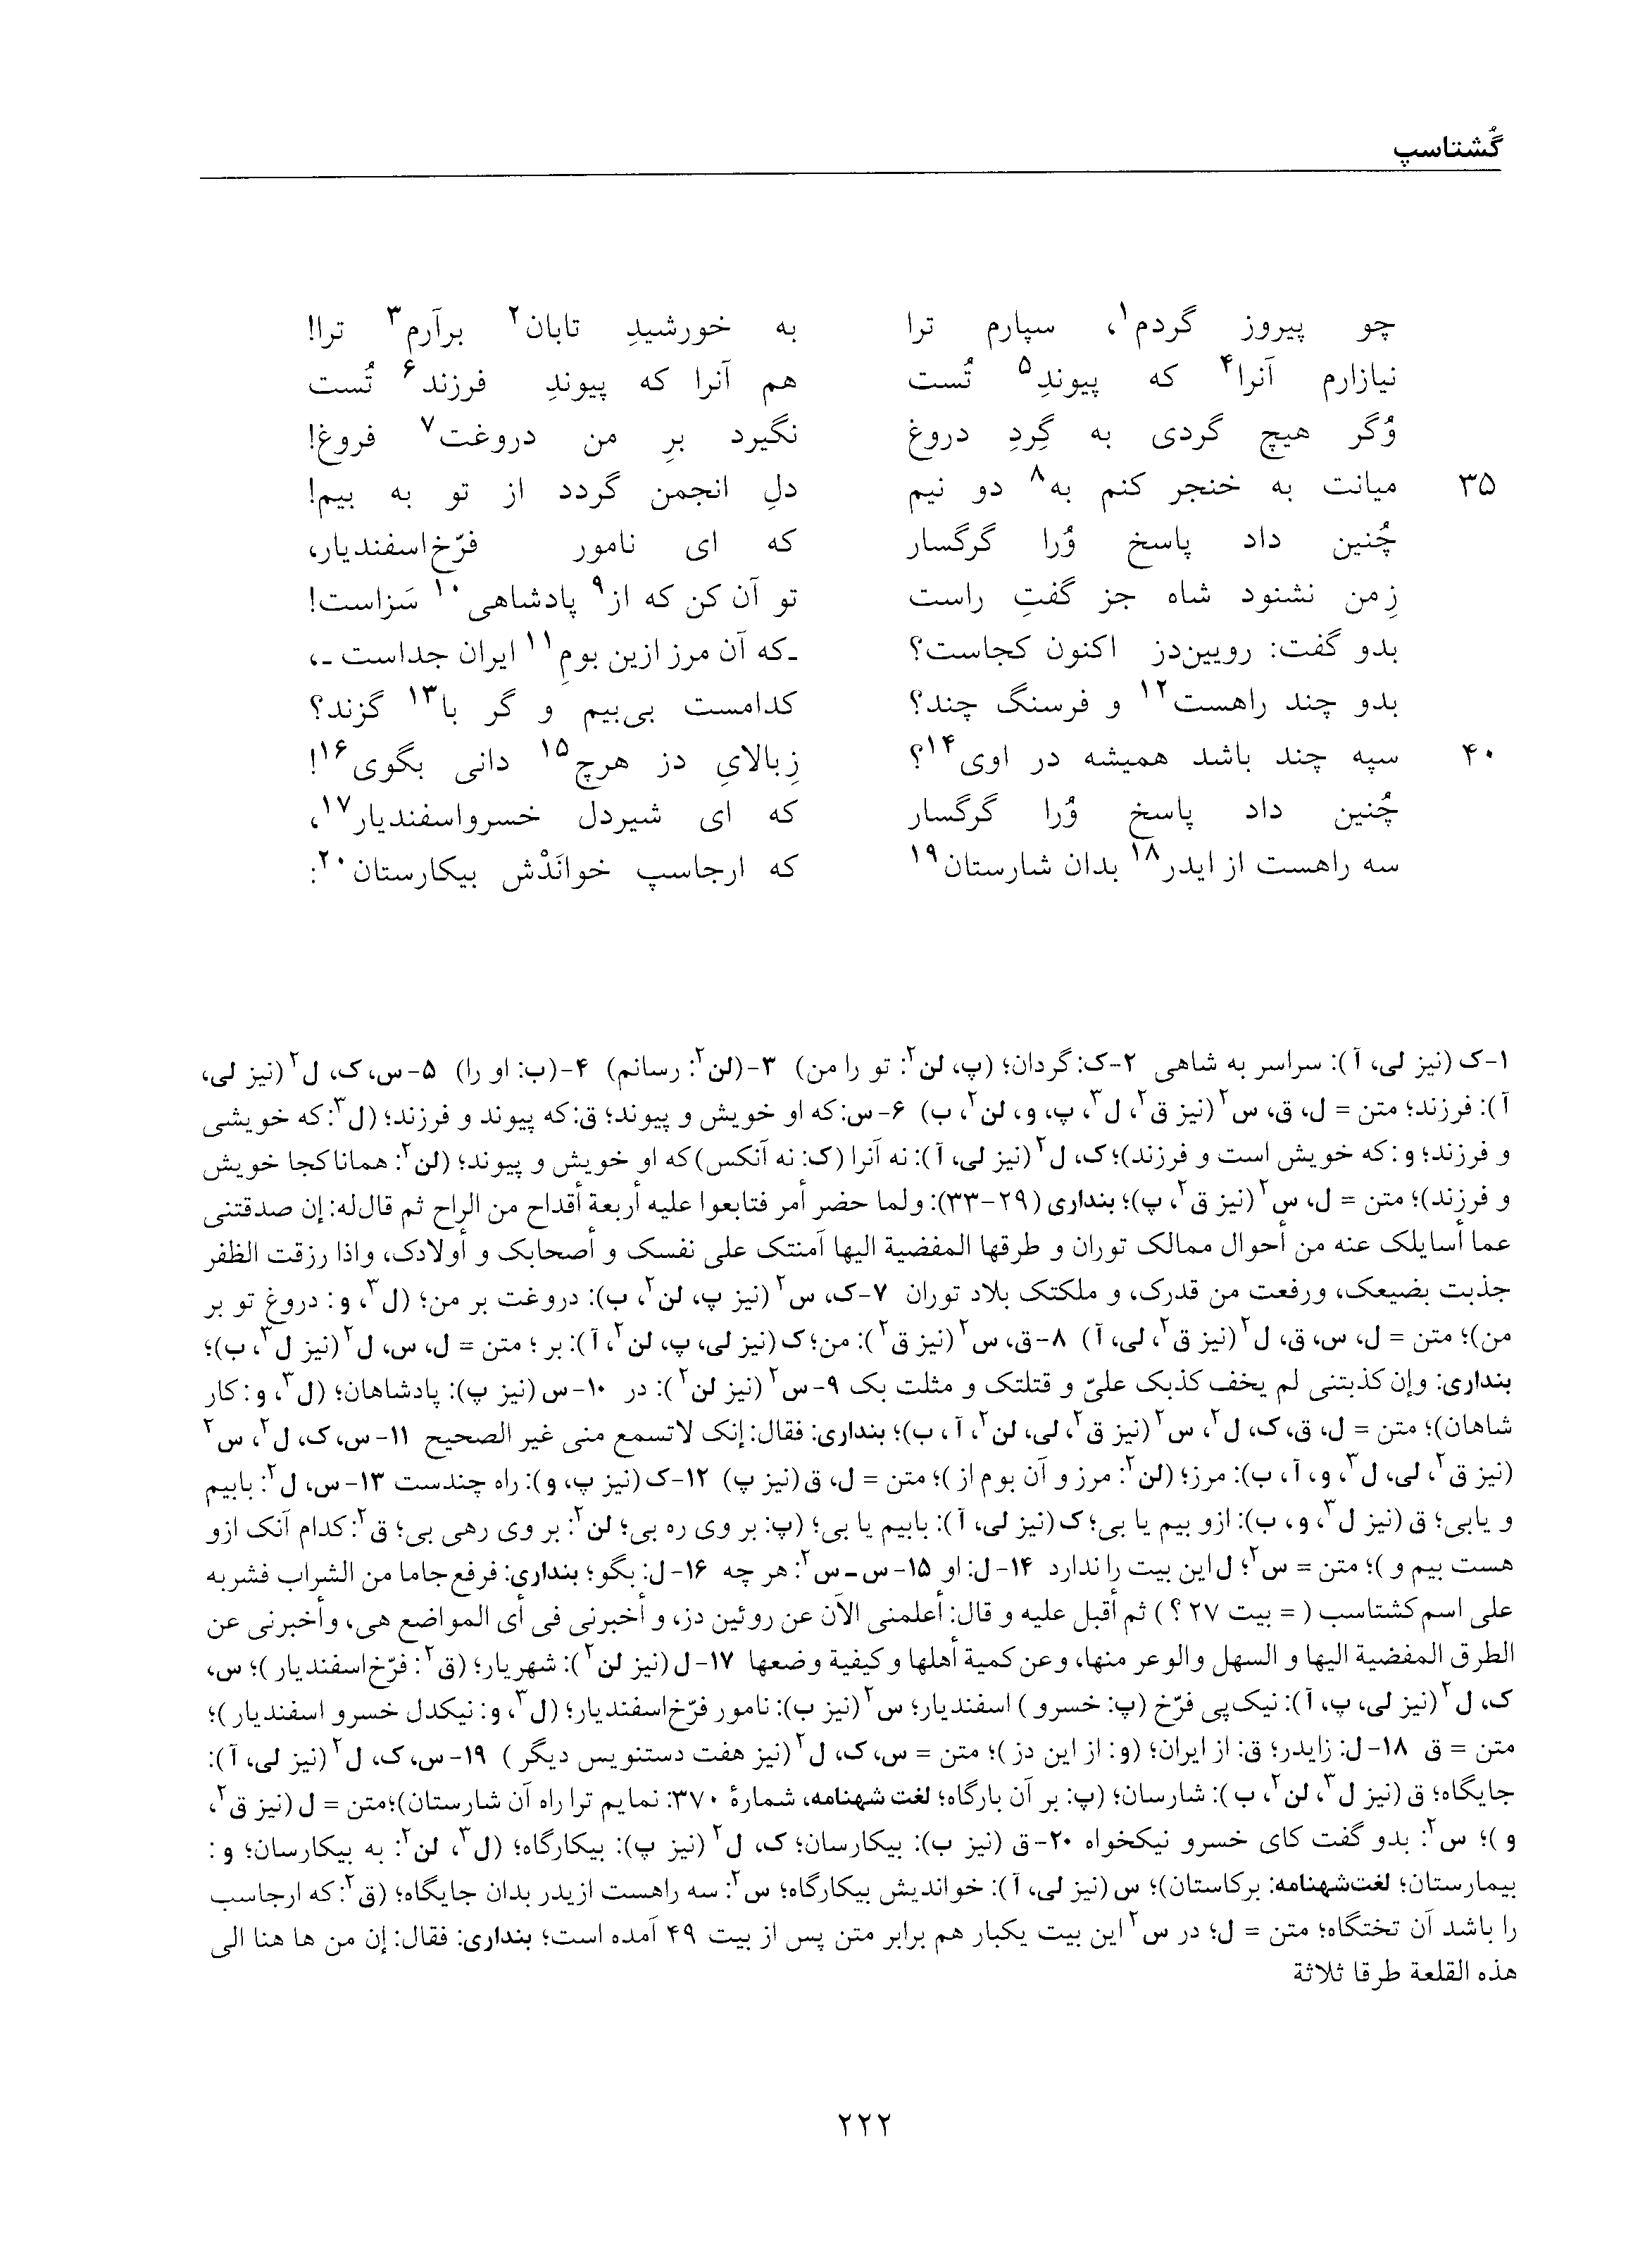 گُشتاسپ
چو پیروز گردم۱، سپارم ترا به خورشیدِ تابان۲ برآرم۳ ترا!
نیازارم آنرا۴ که پیوندِ۵ تُست هم آنرا که پیوندِ فرزند۶ تُست
وُگر هیچ گردی به گِردِ دروغ نگیرد برِ من دروغت۷ فروغ!
۳۵ میانت به خنجر کنم به۸ دو نیم دلِ انجمن گردد از تو به بیم!
چُنین داد پاسخ وُرا گرگسار که ای نامور فرّخ‌اسفندیار،
زِمن نشنود شاه جز گفتِ راست تو آن کن که از۹ پادشاهی۱۰ سَزاست!
بدو گفت: رویین‌دز اکنون کجاست؟ ـ‌که آن مرز ازین بومِ۱۱ ایران جداست ـ،
بدو چند راهست۱۲ و فرسنگ چند؟ کدامست بی‌بیم و گر با۱۳ گزند؟
۴۰ سپه چند باشد همیشه در اوی۱۴؟ زِبالایِ دز هرچ۱۵ دانی بگوی۱۶!
چُنین داد پاسخ وُرا گرگسار که ای شیردل خسرواسفندیار۱۷،
سه راهست از ایدر۱۸ بدان شارستان۱۹ که ارجاسپ خوانَدْش بیکارستان۲۰:
۱-ک (نیز لی، آ): سراسر به شاهی ۲-ک: گردان؛ (پ، لن۲: تو را من) ۳-(لن۲: رسانم) ۴-(ب: او را) ۵-س، ک، ل۲ (نیز لی،
آ): فرزند؛ متن = ل، ق، س۲ (نیز ق۲، ل۳، پ، و، لن۲، ب) ۶-س: که او خویش و پیوند؛ ق: که پیوند و فرزند؛ (ل۳: که خویشی
و فرزند؛ و: که خویش است و فرزند)؛ ک، ل۲ (نیز لی، آ): نه آنرا (ک: نه آنکس) که او خویش و پیوند؛ (لن۲: همانا کجا خویش
و فرزند)؛ متن = ل، س۲ (نیز ق۲، پ)؛ بنداری (۲۹-۳۳): ولما حضر أمر فتابعوا علیه أربعة أقداح من الراح ثم قال‌له: إن صدقتنی
عما أسایلک عنه من أحوال ممالک توران و طرقها المفضیة الیها آمنتک علی نفسک و أصحابک و أولادک، واذا رزقت الظفر
جذبت بضیعک، ورفعت من قدرک، و ملکتک بلاد توران ۷-ک، س۲ (نیز پ، لن۲، ب): دروغت بر من؛ (ل۳، و: دروغ تو بر
من)؛ متن = ل، س، ق، ل۲ (نیز ق۲، لی، آ) ۸-ق، س۲ (نیز ق۲): من؛ ک (نیز لی، پ، لن۲، آ): بر؛ متن = ل، س، ل۲ (نیز ل۳، ب)؛
بنداری: وإن کذبتنی لم یخف کذبک علیّ و قتلتک و مثلت بک ۹-س۲ (نیز لن۲): در ۱۰-س (نیز پ): پادشاهان؛ (ل۳، و: کار
شاهان)؛ متن = ل، ق، ک، ل۲، س۲ (نیز ق۲، لی، لن۲، آ، ب)؛ بنداری: فقال: إنک لاتسمع منی غیر الصحیح ۱۱-س، ک، ل۲، س۲
(نیز ق۲، لی، ل۳، و، آ، ب): مرز؛ (لن۲: مرز و آن بوم از)؛ متن = ل، ق (نیز پ) ۱۲-ک (نیز پ، و): راه چندست ۱۳-س، ل۲: بابیم
و یابی؛ ق (نیز ل۳، و، ب): ازو بیم یا بی؛ ک (نیز لی، آ): بابیم یا بی؛ (پ: بر وی ره بی؛ لن۲: بر وی رهی بی؛ ق۲: کدام آنک ازو
هست بیم و)؛ متن = س۲؛ ل این بیت را ندارد ۱۴-ل: او ۱۵-س-س۲: هر چه ۱۶-ل: بگو؛ بنداری: فرفع جاما من الشراب فشربه
علی اسم کشتاسب (= بیت ۲۷ ؟) ثم أقبل علیه و قال: أعلمنی الآن عن روئین دز، و أخبرنی فی أی المواضع هی، وأخبرنی عن
الطرق المفضیة الیها و السهل والوعر منها، وعن کمیة أهلها و کیفیة وضعها ۱۷-ل (نیز لن۲): شهریار؛ (ق۲: فرّخ‌اسفندیار)؛ س،
ک، ل۲ (نیز لی، پ، آ): نیک‌پی فرّخ (پ: خسرو) اسفندیار؛ س۲ (نیز ب): نامور فرّخ‌اسفندیار؛ (ل۳، و: نیکدل خسرو اسفندیار)؛
متن = ق ۱۸-ل: زایدر؛ ق: از ایران؛ (و: از این دز)؛ متن = س، ک، ل۲ (نیز هفت دستنویس دیگر) ۱۹-س، ک، ل۲ (نیز لی، آ):
جایگاه؛ ق (نیز ل۳، لن۲، ب): شارسان؛ (پ: بر آن بارگاه؛ لغت شهنامه، شمارهٔ ۳۷۰: نمایم ترا راه آن شارستان)؛ متن = ل (نیز ق۲،
و)؛ س۲: بدو گفت کای خسرو نیکخواه ۲۰-ق (نیز ب): بیکارسان؛ ک، ل۲ (نیز پ): بیکارگاه؛ (ل۳، لن۲: به بیکارسان؛ و:
بیمارستان؛ لغت‌شهنامه: برکاستان)؛ س (نیز لی، آ): خواندیش بیکارگاه؛ س۲: سه راهست ازیدر بدان جایگاه؛ (ق۲: که ارجاسب
را باشد آن تختگاه؛ متن = ل؛ در س۲ این بیت یکبار هم برابر متن پس از بیت ۴۹ آمده است؛ بنداری: فقال: إن من ها هنا الی
هذه القلعة طرقا ثلاثة
۲۲۲